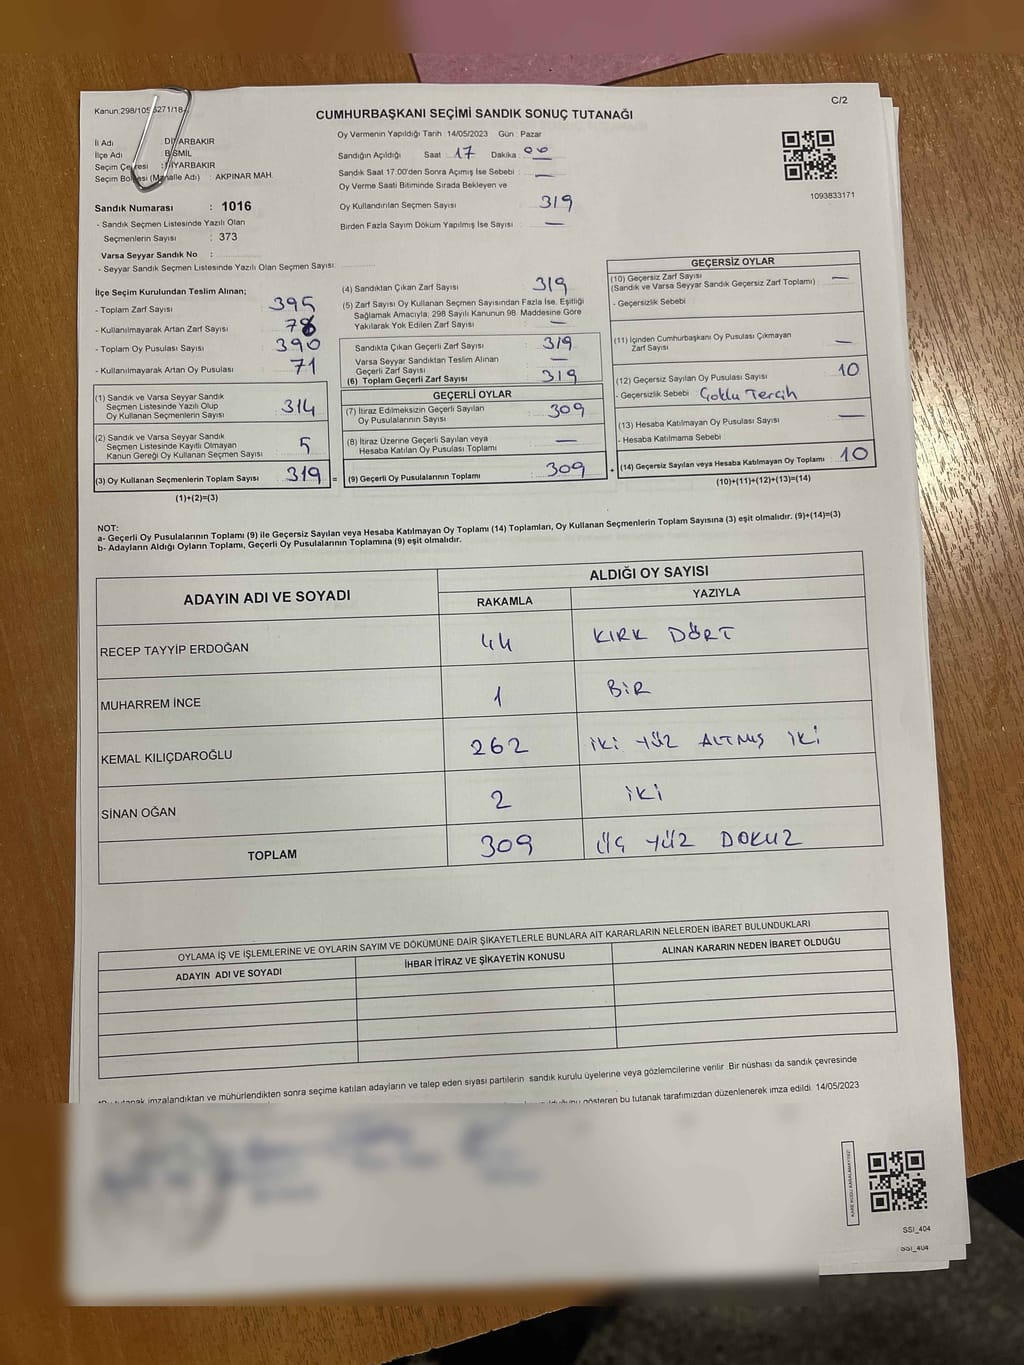 Kanun:298/105
5271/18-
C/2
CUMHURBAŞKANI SEÇİMİ SANDIK SONUÇ TUTANAĞI
Oy Vermenin Yapıldığı Tarih :14/05/2023 Gün : Pazar
İl Adı DİYARBAKIR
İlçe Adı : BİSMİL
Seçim Çevresi : DİYARBAKIR
Seçim Bölgesi (Mahalle Adı) : AKPINAR MAH.
Sandığın Açıldığı Saat : 17 Dakika : 00
Sandık Saat 17.00'den Sonra Açımış İse Sebebi : —
Oy Verme Saati Bitiminde Sırada Bekleyen ve
Oy Kullandırılan Seçmen Sayısı : 319
Birden Fazla Sayım Döküm Yapılmış İse Sayısı : —
1093833171
Sandık Numarası : 1016
- Sandık Seçmen Listesinde Yazılı Olan
Seçmenlerin Sayısı : 373
Varsa Seyyar Sandık No :
- Seyyar Sandık Seçmen Listesinde Yazılı Olan Seçmen Sayısı:
İlçe Seçim Kurulundan Teslim Alınan;
- Toplam Zarf Sayısı : 395
- Kullanılmayarak Artan Zarf Sayısı :
- Toplam Oy Pusulası Sayısı : 390
- Kullanılmayarak Artan Oy Pusulası : 71
(1) Sandık ve Varsa Seyyar Sandık
Seçmen Listesinde Yazılı Olup
Oy Kullanan Seçmenlerin Sayısı : 314
(2) Sandık ve Varsa Seyyar Sandık
Seçmen Listesinde Kayıtlı Olmayan
Kanun Gereği Oy Kullanan Seçmen Sayısı : 5
(3) Oy Kullanan Seçmenlerin Toplam Sayısı : 319 =
(1)+(2)=(3)
(4) Sandıktan Çıkan Zarf Sayısı : 319
(5) Zarf Sayısı Oy Kullanan Seçmen Sayısından Fazla İse, Eşitliği
Sağlamak Amacıyla; 298 Sayılı Kanunun 98. Maddesine Göre
Yakılarak Yok Edilen Zarf Sayısı : —
Sandıkta Çıkan Geçerli Zarf Sayısı : 319
Varsa Seyyar Sandıktan Teslim Alınan
Geçerli Zarf Sayısı : —
(6) Toplam Geçerli Zarf Sayısı : 319
GEÇERLİ OYLAR
(7) İtiraz Edilmeksizin Geçerli Sayılan
Oy Pusulalarının Sayısı : 309
(8) İtiraz Üzerine Geçerli Sayılan veya
Hesaba Katılan Oy Pusulası Toplamı : —
(9) Geçerli Oy Pusulalarının Toplamı : 309 +
GEÇERSİZ OYLAR
(10) Geçersiz Zarf Sayısı
(Sandık ve Varsa Seyyar Sandık Geçersiz Zarf Toplamı) : —
- Geçersizlik Sebebi
(11) İçinden Cumhurbaşkanı Oy Pusulası Çıkmayan
Zarf Sayısı : —
(12) Geçersiz Sayılan Oy Pusulası Sayısı : 10
- Geçersizlik Sebebi : Çoklu Tercih
(13) Hesaba Katılmayan Oy Pusulası Sayısı : —
- Hesaba Katılmama Sebebi
(14) Geçersiz Sayılan veya Hesaba Katılmayan Oy Toplamı : 10
(10)+(11)+(12)+(13)=(14)
NOT:
a- Geçerli Oy Pusulalarının Toplamı (9) ile Geçersiz Sayılan veya Hesaba Katılmayan Oy Toplamı (14) Toplamları, Oy Kullanan Seçmenlerin Toplam Sayısına (3) eşit olmalıdır. (9)+(14)=(3)
b- Adayların Aldığı Oyların Toplamı, Geçerli Oy Pusulalarının Toplamına (9) eşit olmalıdır.
ADAYIN ADI VE SOYADI ALDIĞI OY SAYISI
RAKAMLA YAZIYLA
RECEP TAYYİP ERDOĞAN 44 KIRK DÖRT
MUHARREM İNCE 1 BİR
KEMAL KILIÇDAROĞLU 262 İKİ YÜZ ALTMIŞ İKİ
SİNAN OĞAN 2 İKİ
TOPLAM 309 ÜÇ YÜZ DOKUZ
OYLAMA İŞ VE İŞLEMLERİNE VE OYLARIN SAYIM VE DÖKÜMÜNE DAİR ŞİKAYETLERLE BUNLARA AİT KARARLARIN NELERDEN İBARET BULUNDUKLARI
ADAYIN ADI VE SOYADI İHBAR İTİRAZ VE ŞİKAYETİN KONUSU ALINAN KARARIN NEDEN İBARET OLDUĞU
tutanak imzalandıktan ve mühürlendikten sonra seçime katılan adayların ve talep eden siyasi partilerin sandık kurulu üyelerine veya gözlemcilerine verilir. Bir nüshası da sandık çevresinde
gösteren bu tutanak tarafımızdan düzenlenerek imza edildi. 14/05/2023
KARE KODU KARALAMAYINIZ!
SSI_404
SSI_404